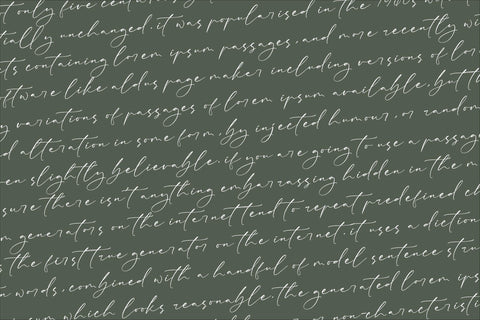 t only five centuries
tially unchanged. it was popularised in the 1960s with
ts containing lorem ipsum passages, and more recently with
oftware like aldus page maker including versions of lor
y variations of passages of lorem ipsum available, but th
d alteration in some form, by injected humour, or random
en slightly believable. if you are going to use a passage
sure there isn't anything embarrassing hidden in the m
m generators on the internet tend to repeat predefined ch
s the first true generator on the internet. it uses a diction
n words, combined with a handful of model sentence stru
psum which looks reasonable. the generated lorem ips
or non-characteristi